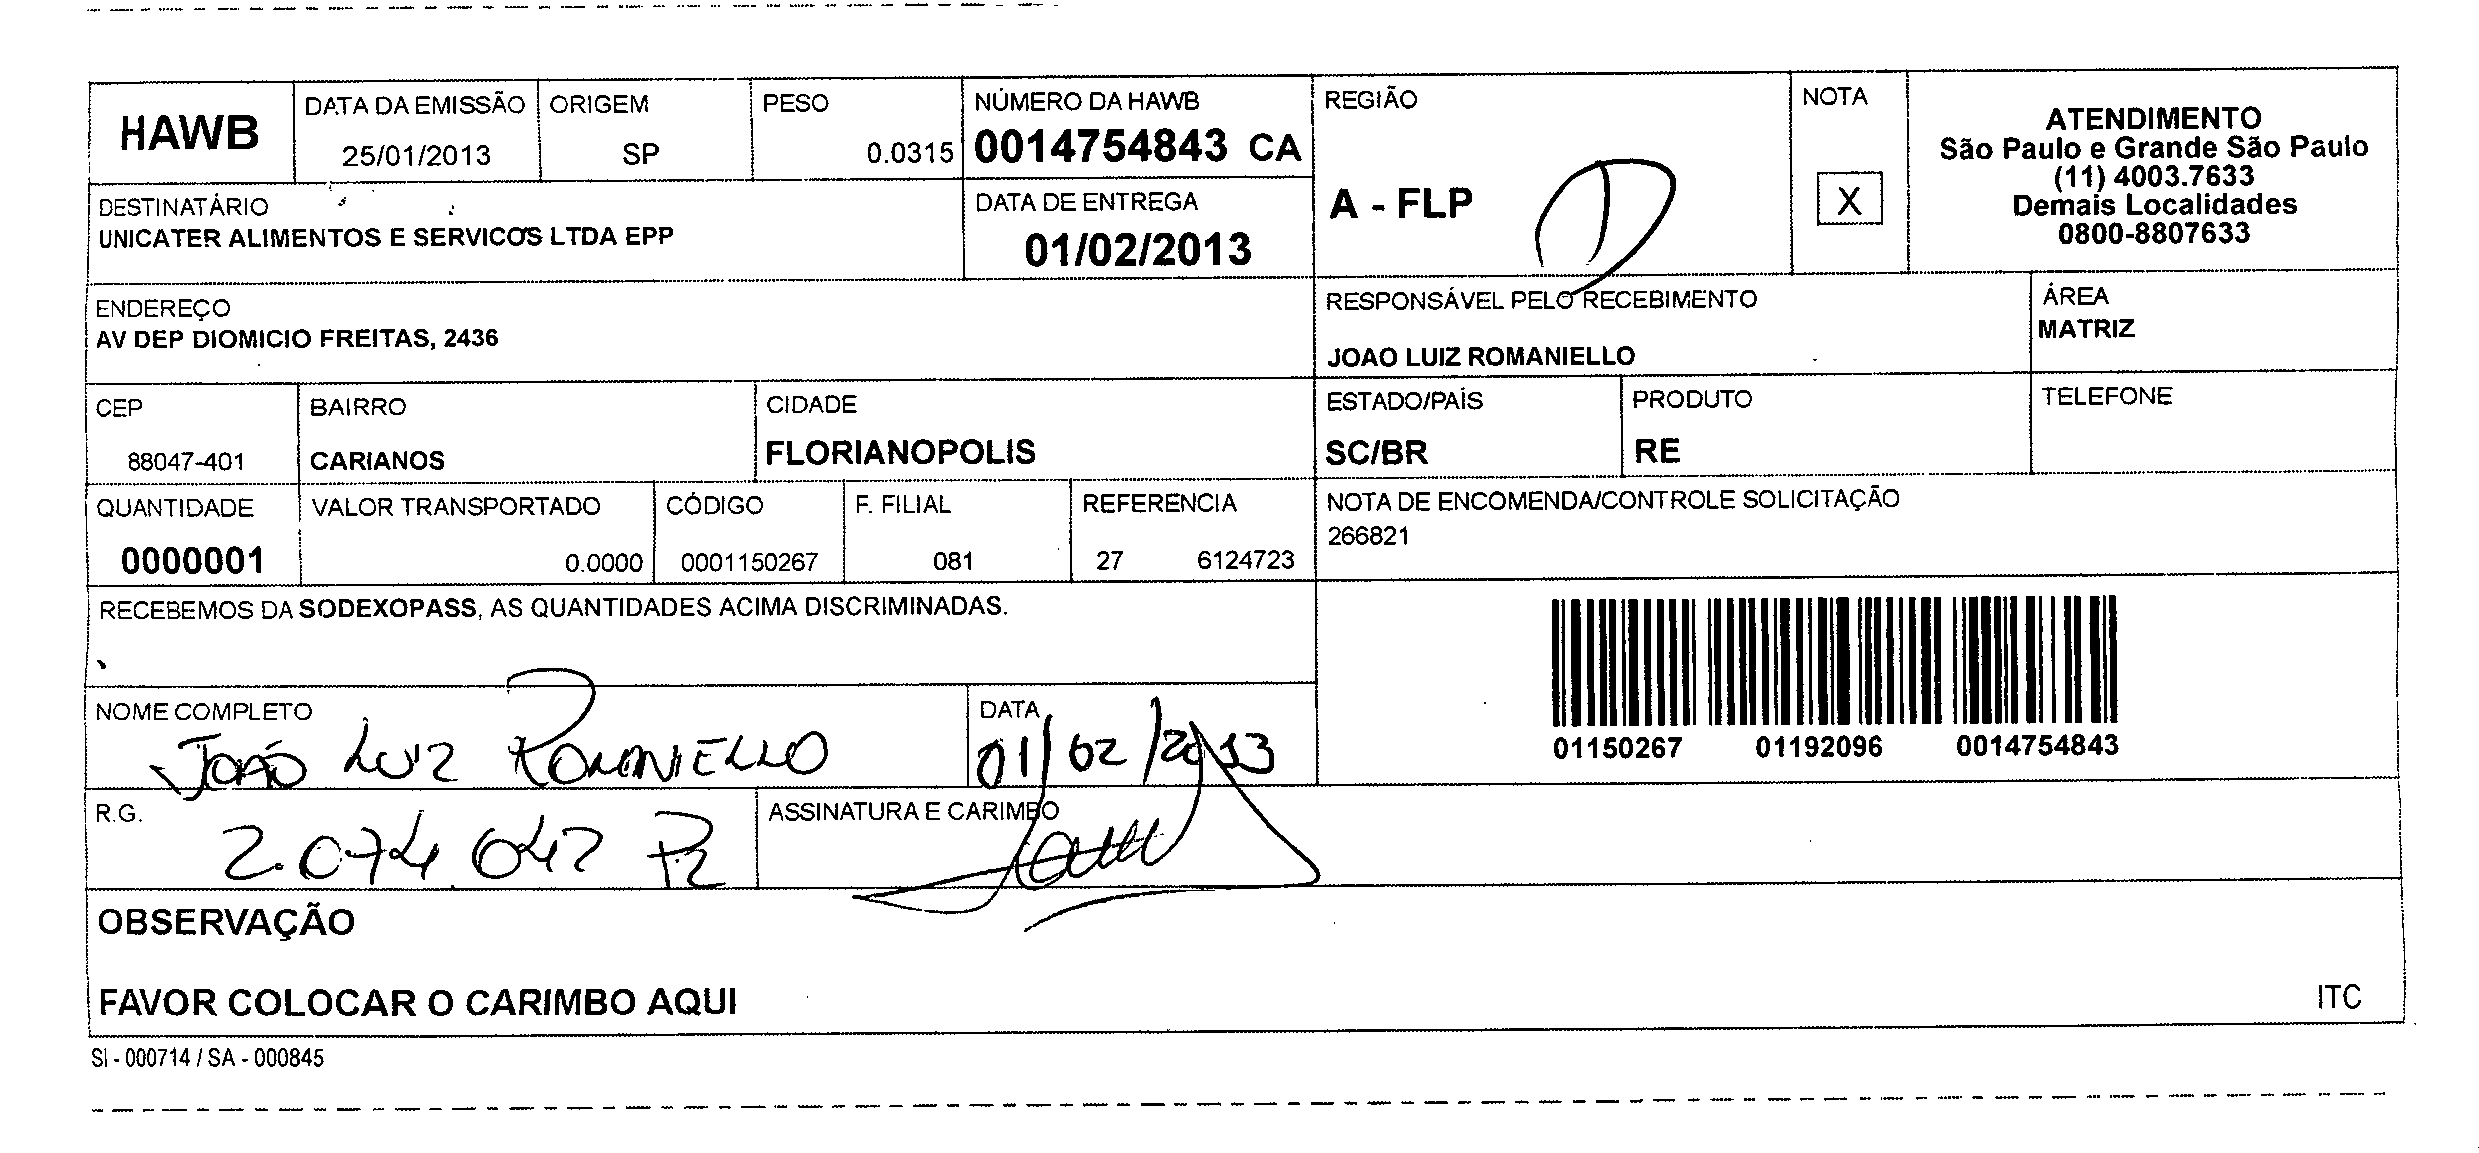 HAWB
DATA DA EMISSÃO
25/01/2013
ORIGEM
SP
PESO
0.0315
NÚMERO DA HAWB
0014754843 CA
REGIÃO
A - FLP
NOTA
X
ATENDIMENTO
São Paulo e Grande São Paulo
(11) 4003.7633
Demais Localidades
0800-8807633
DESTINATÁRIO
UNICATER ALIMENTOS E SERVICOS LTDA EPP
DATA DE ENTREGA
01/02/2013
ENDEREÇO
AV DEP DIOMICIO FREITAS, 2436
RESPONSÁVEL PELO RECEBIMENTO
JOAO LUIZ ROMANIELLO
ÁREA
MATRIZ
CEP
88047-401
BAIRRO
CARIANOS
CIDADE
FLORIANOPOLIS
ESTADO/PAÍS
SC/BR
PRODUTO
RE
TELEFONE
QUANTIDADE
0000001
VALOR TRANSPORTADO
0.0000
CÓDIGO
0001150267
F. FILIAL
081
REFERENCIA
27 6124723
NOTA DE ENCOMENDA/CONTROLE SOLICITAÇÃO
266821
RECEBEMOS DA SODEXOPASS, AS QUANTIDADES ACIMA DISCRIMINADAS.
01150267 01192096 0014754843
NOME COMPLETO
JOÃO LUIZ ROMANIELLO
DATA
01/02/2013
R.G.
2.074.042
ASSINATURA E CARIMBO
OBSERVAÇÃO
FAVOR COLOCAR O CARIMBO AQUI
ITC
SI - 000714 / SA - 000845